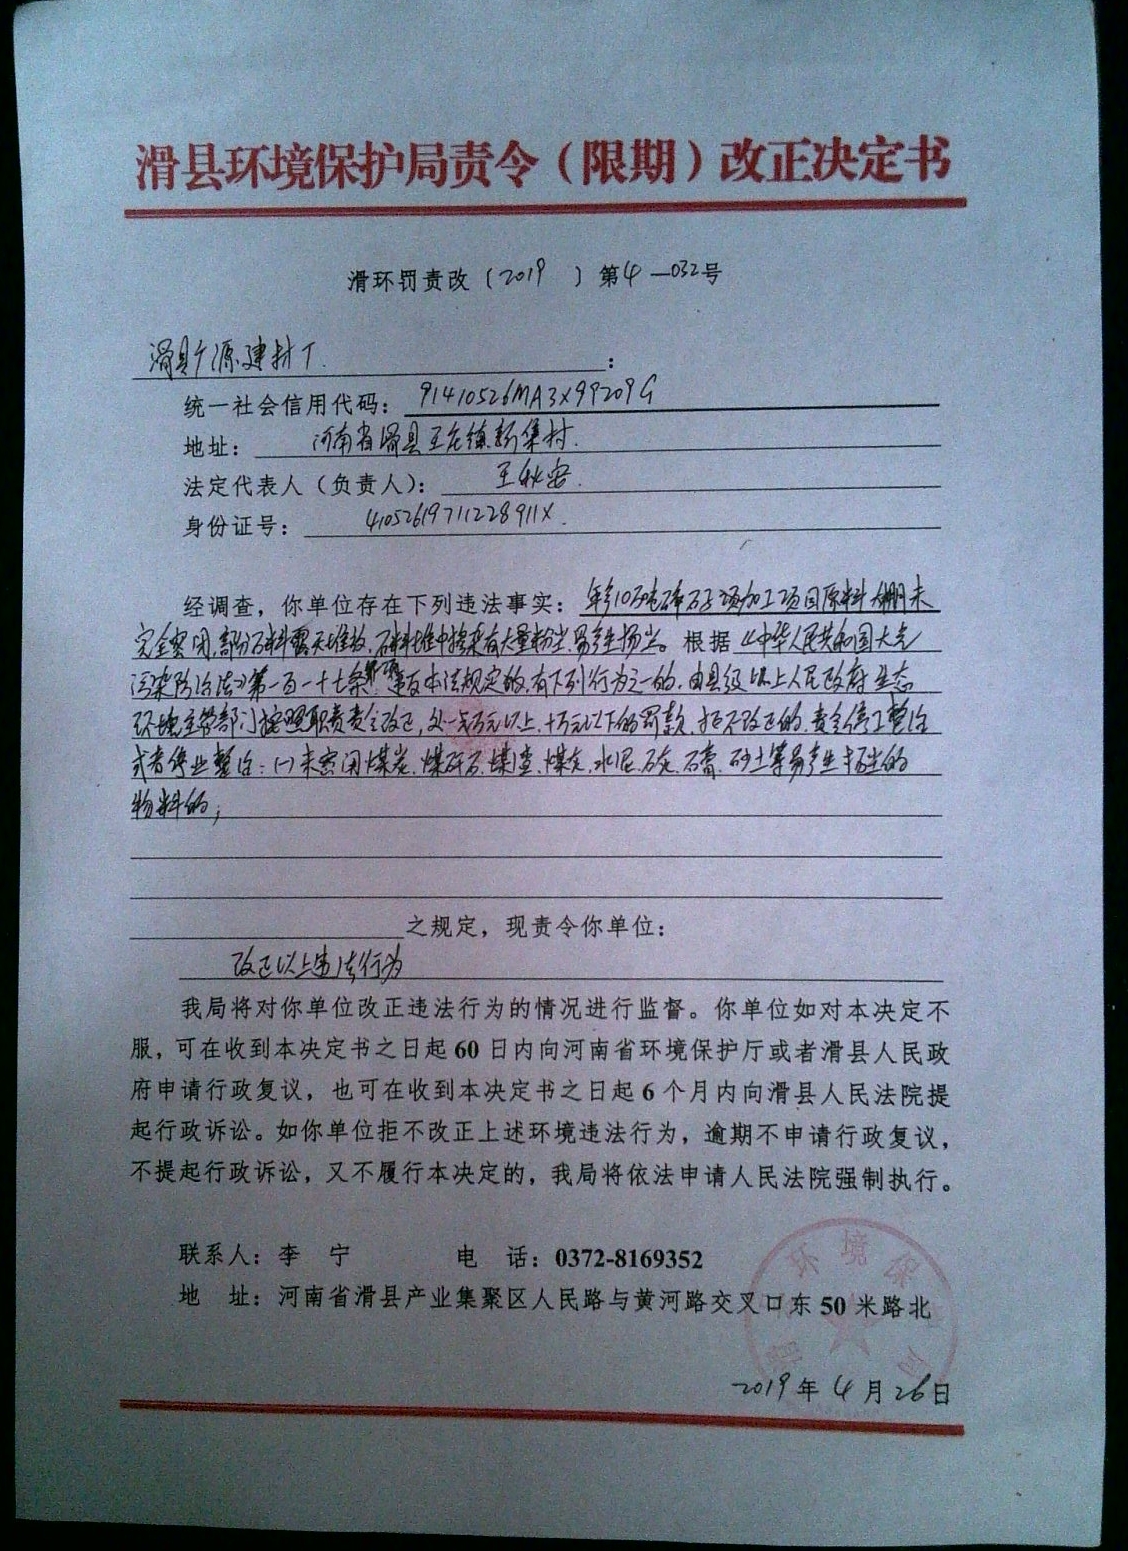 滑县环境保护局责令（限期）改正决定书
滑环罚责改（2019）第4—032号
滑县广源建材厂：
统一社会信用代码：91410526MA3X9P209G
地址：河南省滑县王庄镇新集村.
法定代表人（负责人）：王秋安.
身份证号：41052619711228911X.
经调查，你单位存在下列违法事实：年产10万吨碎石子项加工项目原料棚未
完全密闭,部分石料露天堆放,石料堆中掺杂有大量粉尘,易产生扬尘。根据《中华人民共和国大气
污染防治法》第一百一十七条 违反本法规定的,有下列行为之一的,由县级以上人民政府生态
环境主管部门按照职责责令改正,处一万元以上,十万元以下的罚款,拒不改正的,责令停工整治
或者停业整治：(一)未密闭煤炭、煤矸石、煤渣、煤灰、水泥、石灰、石膏、砂土等易产生扬尘的
物料的；
之规定，现责令你单位：
改正以上违法行为
我局将对你单位改正违法行为的情况进行监督。你单位如对本决定不
服，可在收到本决定书之日起 60 日内向河南省环境保护厅或者滑县人民政
府申请行政复议，也可在收到本决定书之日起 6 个月内向滑县人民法院提
起行政诉讼。如你单位拒不改正上述环境违法行为，逾期不申请行政复议，
不提起行政诉讼，又不履行本决定的，我局将依法申请人民法院强制执行。
联系人：李 宁 电 话：0372-8169352
地 址：河南省滑县产业集聚区人民路与黄河路交叉口东 50 米路北
环境保 局
2019年4月26日